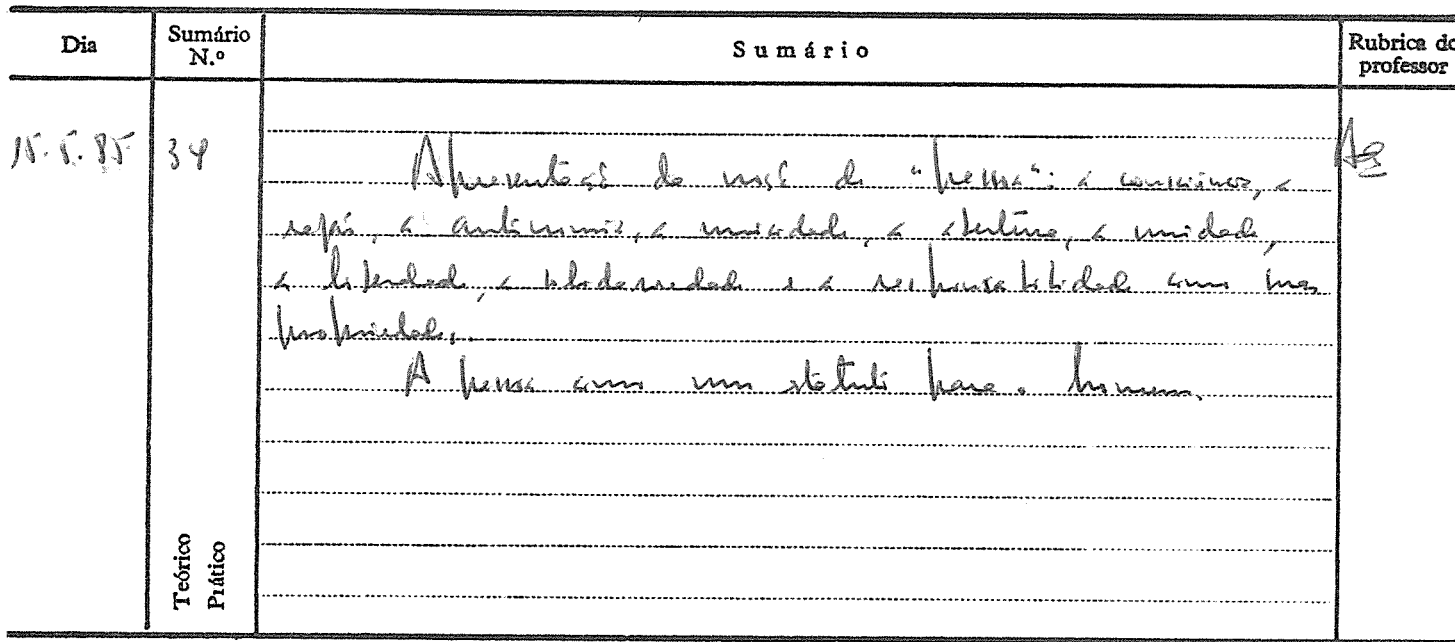 Dia
Sumário N.º
Sumário
Rubrica do professor
15.5.85
34
Apresentação da noção de "pessoa": a consciência, a
razão, a autonomia, a unicidade, a abertura, a unidade,
a liberdade, a solidariedade e a responsabilidade como suas
propriedades.
A pessoa como um estatuto para o homem.
Teórico
Prático